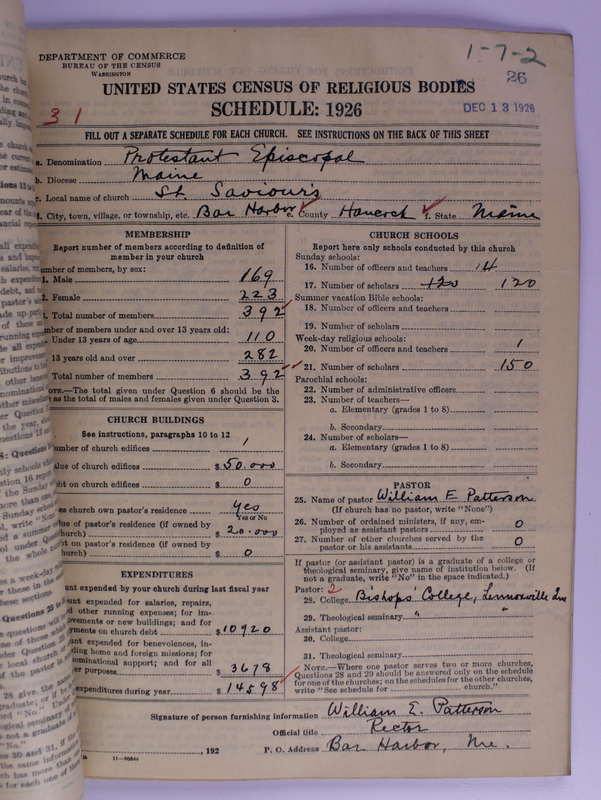 1-7-2
26
DEPARTMENT OF COMMERCE
BUREAU OF THE CENSUS
WASHINGTON
UNITED STATES CENSUS OF RELIGIOUS BODIES
SCHEDULE: 1926
DEC 13 1926
31
FILL OUT A SEPARATE SCHEDULE FOR EACH CHURCH. SEE INSTRUCTIONS ON THE BACK OF THIS SHEET
a. Denomination Protestant Episcopal
b. Diocese Maine
c. Local name of church St. Saviour's
d. City, town, village, or township, etc. Bar Harbor e. County Hancock f. State Maine
MEMBERSHIP
Report number of members according to definition of
member in your church
umber of members, by sex:
1. Male 169
2. Female 223
3. Total number of members 392
mber of members under and over 13 years old:
Under 13 years of age 110
13 years old and over 282
Total number of members 392
NOTE.—The total given under Question 6 should be the
as the total of males and females given under Question 3.
CHURCH BUILDINGS
See instructions, paragraphs 10 to 12
umber of church edifices 1
alue of church edifices $50.000
bt on church edifices $ 0
es church own pastor's residence yes
Yes or No
ue of pastor's residence (if owned by
church) $ 20.000
t on pastor's residence (if owned by
church) $ 0
EXPENDITURES
unt expended by your church during last fiscal year
unt expended for salaries, repairs,
other running expenses; for im-
ovements or new buildings; and for
yments on church debt $10920
unt expended for benevolences, in-
ding home and foreign missions; for
nominational support; and for all
er purposes $ 3678
expenditures during year $ 14598
CHURCH SCHOOLS
Report here only schools conducted by this church
Sunday schools:
16. Number of officers and teachers 14
17. Number of scholars 120 120
Summer vacation Bible schools:
18. Number of officers and teachers
19. Number of scholars
Week-day religious schools:
20. Number of officers and teachers 1
21. Number of scholars 150
Parochial schools:
22. Number of administrative officers
23. Number of teachers—
a. Elementary (grades 1 to 8)
b. Secondary
24. Number of scholars—
a. Elementary (grades 1 to 8)
b. Secondary
PASTOR
25. Name of pastor William E Patterson
(If church has no pastor, write "None")
26. Number of ordained ministers, if any, em-
ployed as assistant pastors 0
27. Number of other churches served by the
pastor or his assistants 0
If pastor (or assistant pastor) is a graduate of a college or
theological seminary, give name of institution below. (If
not a graduate, write "No" in the space indicated.)
Pastor: 2
28. College Bishops' College, Lennoxville
29. Theological seminary " "
Assistant pastor:
30. College
31. Theological seminary
NOTE.—Where one pastor serves two or more churches,
Questions 28 and 29 should be answered only on the schedule
for one of the churches; on the schedules for the other churches,
write "See schedule for church."
Signature of person furnishing information William E. Patterson
Official title Rector
, 192 P. O. Address Bar Harbor, Me.